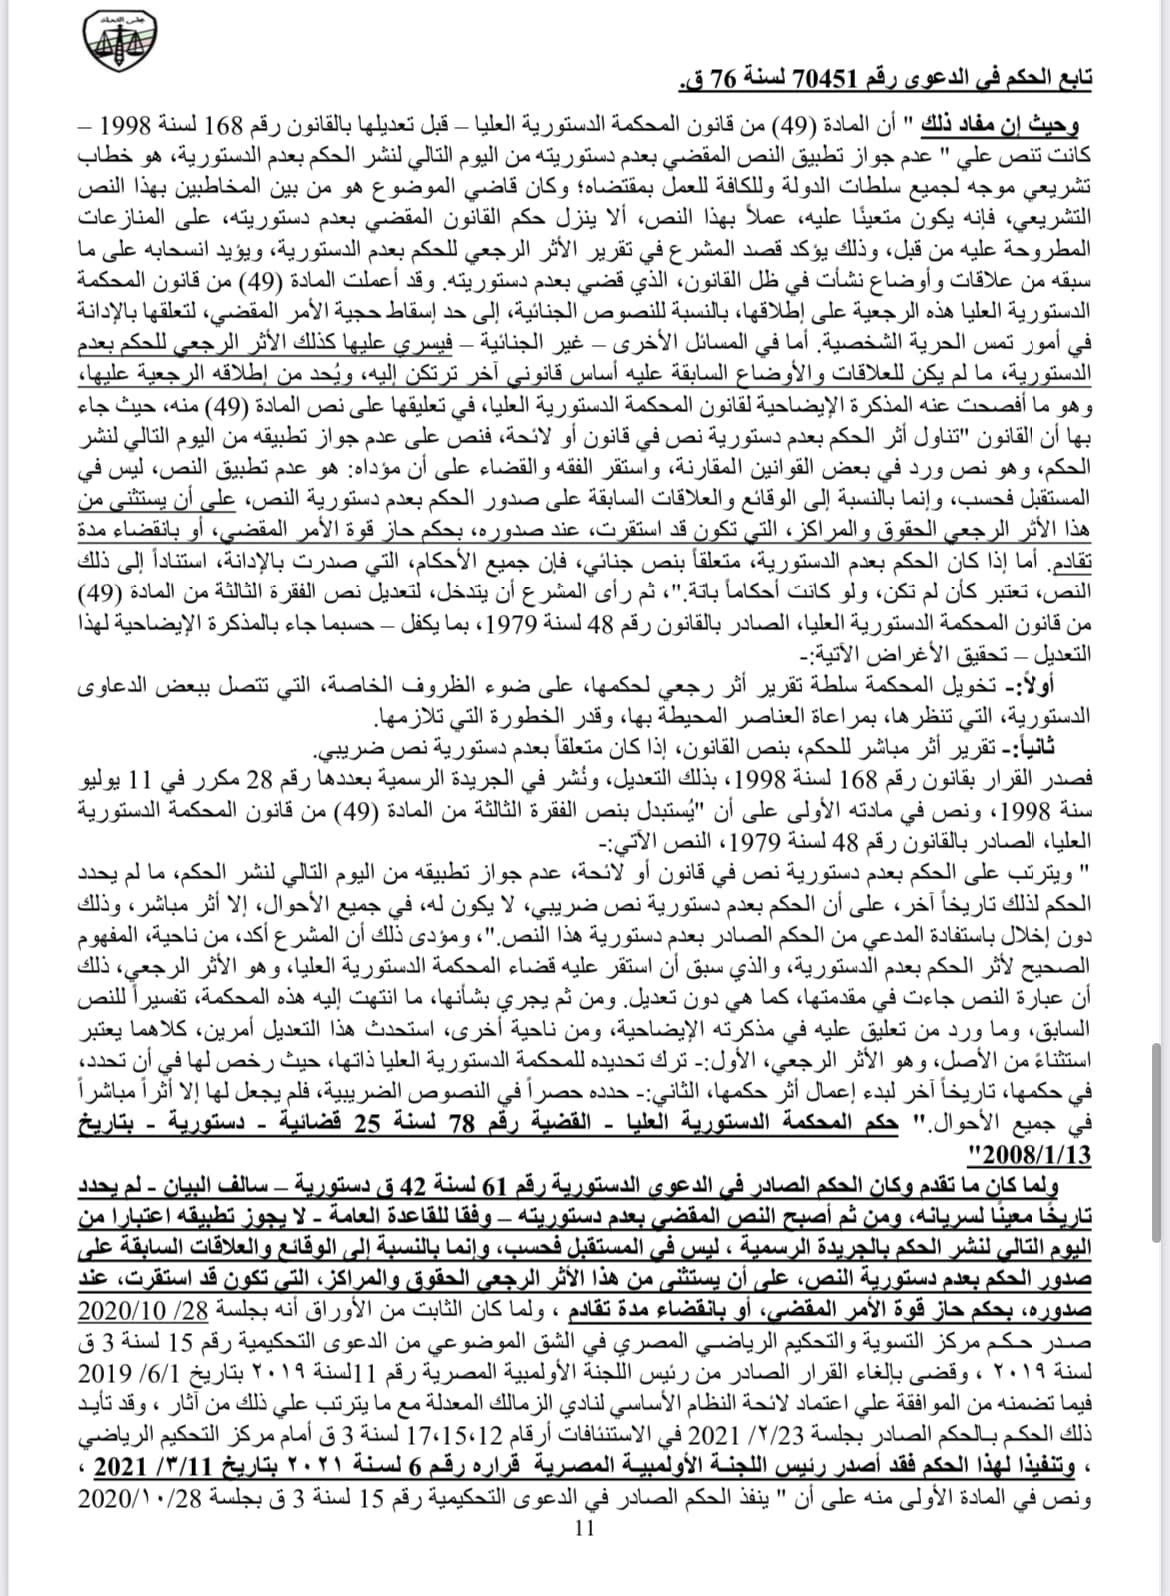 مجلس الدولة
تابع الحكم في الدعوى رقم 70451 لسنة 76 ق.
وحيث إن مفاد ذلك " أن المادة (49) من قانون المحكمة الدستورية العليا – قبل تعديلها بالقانون رقم 168 لسنة 1998 –
كانت تنص علي " عدم جواز تطبيق النص المقضي بعدم دستوريته من اليوم التالي لنشر الحكم بعدم الدستورية، هو خطاب
تشريعي موجه لجميع سلطات الدولة وللكافة للعمل بمقتضاه؛ وكان قاضي الموضوع هو من بين المخاطبين بهذا النص
التشريعي، فإنه يكون متعينًا عليه، عملاً بهذا النص، ألا ينزل حكم القانون المقضي بعدم دستوريته، على المنازعات
المطروحة عليه من قبل، وذلك يؤكد قصد المشرع في تقرير الأثر الرجعي للحكم بعدم الدستورية، ويؤيد انسحابه على ما
سبقه من علاقات وأوضاع نشأت في ظل القانون، الذي قضي بعدم دستوريته. وقد أعملت المادة (49) من قانون المحكمة
الدستورية العليا هذه الرجعية على إطلاقها، بالنسبة للنصوص الجنائية، إلى حد إسقاط حجية الأمر المقضي، لتعلقها بالإدانة
في أمور تمس الحرية الشخصية. أما في المسائل الأخرى – غير الجنائية – فيسري عليها كذلك الأثر الرجعي للحكم بعدم
الدستورية، ما لم يكن للعلاقات والأوضاع السابقة عليه أساس قانوني آخر ترتكن إليه، ويُحد من إطلاقه الرجعية عليها،
وهو ما أفصحت عنه المذكرة الإيضاحية لقانون المحكمة الدستورية العليا، في تعليقها على نص المادة (49) منه، حيث جاء
بها أن القانون "تناول أثر الحكم بعدم دستورية نص في قانون أو لائحة، فنص على عدم جواز تطبيقه من اليوم التالي لنشر
الحكم، وهو نص ورد في بعض القوانين المقارنة، واستقر الفقه والقضاء على أن مؤداه: هو عدم تطبيق النص، ليس في
المستقبل فحسب، وإنما بالنسبة إلى الوقائع والعلاقات السابقة على صدور الحكم بعدم دستورية النص، على أن يستثنى من
هذا الأثر الرجعي الحقوق والمراكز، التي تكون قد استقرت، عند صدوره، بحكم حاز قوة الأمر المقضي، أو بانقضاء مدة
تقادم. أما إذا كان الحكم بعدم الدستورية، متعلقاً بنص جنائي، فإن جميع الأحكام، التي صدرت بالإدانة، استناداً إلى ذلك
النص، تعتبر كأن لم تكن، ولو كانت أحكاماً باتة."، ثم رأى المشرع أن يتدخل، لتعديل نص الفقرة الثالثة من المادة (49)
من قانون المحكمة الدستورية العليا، الصادر بالقانون رقم 48 لسنة 1979، بما يكفل – حسبما جاء بالمذكرة الإيضاحية لهذا
التعديل – تحقيق الأغراض الآتية:-
أولاً:- تخويل المحكمة سلطة تقرير أثر رجعي لحكمها، على ضوء الظروف الخاصة، التي تتصل ببعض الدعاوى
الدستورية، التي تنظرها، بمراعاة العناصر المحيطة بها، وقدر الخطورة التي تلازمها.
ثانياً:- تقرير أثر مباشر للحكم، بنص القانون، إذا كان متعلقاً بعدم دستورية نص ضريبي.
فصدر القرار بقانون رقم 168 لسنة 1998، بذلك التعديل، ونُشر في الجريدة الرسمية بعددها رقم 28 مكرر في 11 يوليو
سنة 1998، ونص في مادته الأولى على أن "يُستبدل بنص الفقرة الثالثة من المادة (49) من قانون المحكمة الدستورية
العليا، الصادر بالقانون رقم 48 لسنة 1979، النص الآتي:-
" ويترتب على الحكم بعدم دستورية نص في قانون أو لائحة، عدم جواز تطبيقه من اليوم التالي لنشر الحكم، ما لم يحدد
الحكم لذلك تاريخاً آخر، على أن الحكم بعدم دستورية نص ضريبي، لا يكون له، في جميع الأحوال، إلا أثر مباشر، وذلك
دون إخلال باستفادة المدعي من الحكم الصادر بعدم دستورية هذا النص."، ومؤدى ذلك أن المشرع أكد، من ناحية، المفهوم
الصحيح لأثر الحكم بعدم الدستورية، والذي سبق أن استقر عليه قضاء المحكمة الدستورية العليا، وهو الأثر الرجعي، ذلك
أن عبارة النص جاءت في مقدمتها، كما هي دون تعديل. ومن ثم يجري بشأنها، ما انتهت إليه هذه المحكمة، تفسيراً للنص
السابق، وما ورد من تعليق عليه في مذكرته الإيضاحية، ومن ناحية أخرى، استحدث هذا التعديل أمرين، كلاهما يعتبر
استثناءً من الأصل، وهو الأثر الرجعي، الأول:- ترك تحديده للمحكمة الدستورية العليا ذاتها، حيث رخص لها في أن تحدد،
في حكمها، تاريخاً آخر لبدء إعمال أثر حكمها، الثاني:- حدده حصراً في النصوص الضريبية، فلم يجعل لها إلا أثراً مباشراً
في جميع الأحوال." حكم المحكمة الدستورية العليا - القضية رقم 78 لسنة 25 قضائية - دستورية - بتاريخ
2008/1/13"
ولما كان ما تقدم وكان الحكم الصادر في الدعوي الدستورية رقم 61 لسنة 42 ق دستورية – سالف البيان - لم يحدد
تاريخًا معينًا لسريانه، ومن ثم أصبح النص المقضي بعدم دستوريته – وفقا للقاعدة العامة - لا يجوز تطبيقه اعتبارا من
اليوم التالي لنشر الحكم بالجريدة الرسمية ، ليس في المستقبل فحسب، وإنما بالنسبة إلى الوقائع والعلاقات السابقة على
صدور الحكم بعدم دستورية النص، على أن يستثنى من هذا الأثر الرجعي الحقوق والمراكز، التي تكون قد استقرت، عند
صدوره، بحكم حاز قوة الأمر المقضي، أو بانقضاء مدة تقادم ، ولما كان الثابت من الأوراق أنه بجلسة 28/ 2020/10
صدر حكم مركز التسوية والتحكيم الرياضي المصري في الشق الموضوعي من الدعوى التحكيمية رقم 15 لسنة 3 ق
لسنة ٢٠١٩ ، وقضى بإلغاء القرار الصادر من رئيس اللجنة الأولمبية المصرية رقم 11لسنة ٢٠١٩ بتاريخ 6/1/ 2019
فيما تضمنه من الموافقة علي اعتماد لائحة النظام الأساسي لنادي الزمالك المعدلة مع ما يترتب علي ذلك من آثار ، وقد تأيد
ذلك الحكم بالحكم الصادر بجلسة ٢/23/ 2021 في الاستئنافات أرقام 12،15،17 لسنة 3 ق أمام مركز التحكيم الرياضي
، وتنفيذا لهذا الحكم فقد أصدر رئيس اللجنة الأولمبية المصرية قراره رقم 6 لسنة ٢٠٢١ بتاريخ ٣/11/ 2021 ،
ونص في المادة الأولى منه على أن " ينفذ الحكم الصادر في الدعوى التحكيمية رقم 15 لسنة 3 ق بجلسة 28/١٠/2020
11